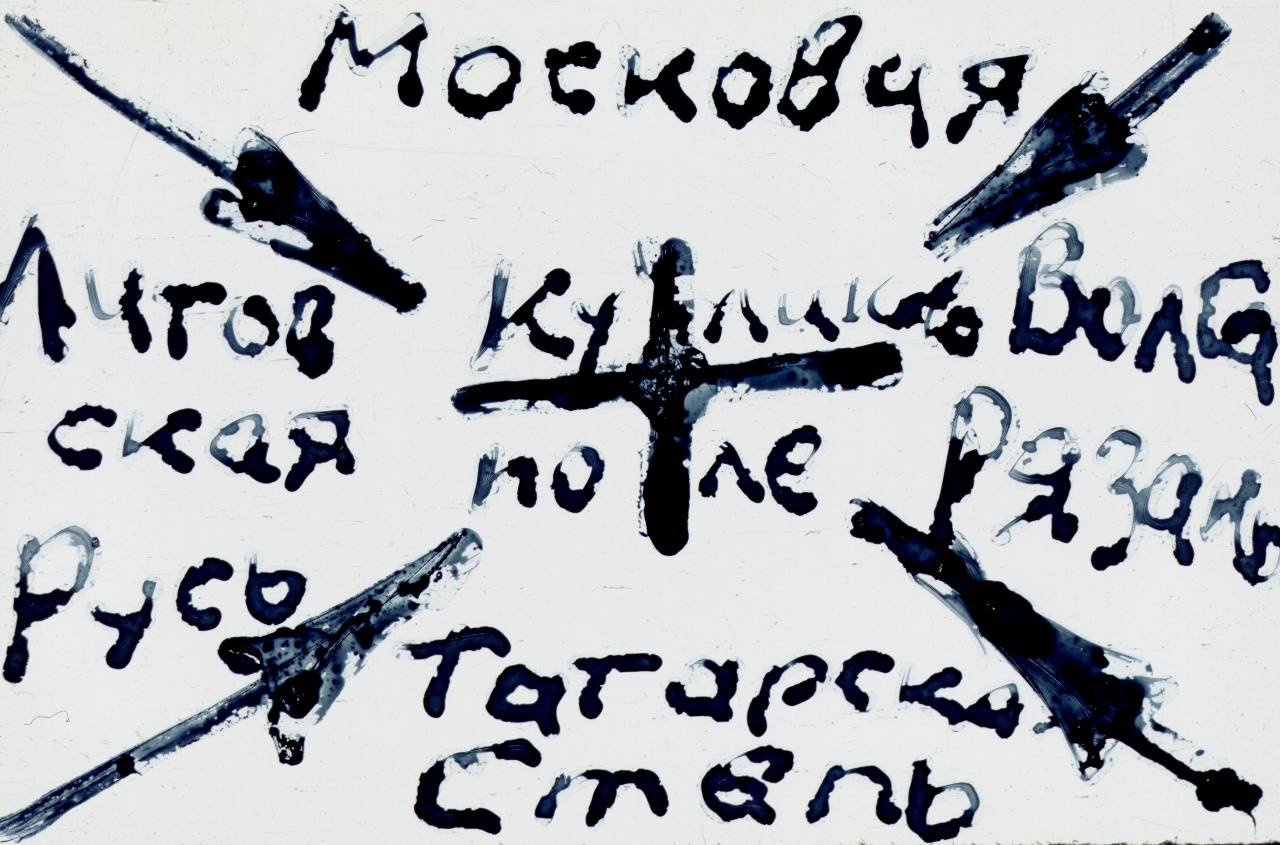 Московия
Литов
ская
Русь
Куликово
поле
Волга
Рязань
Татарская
Степь